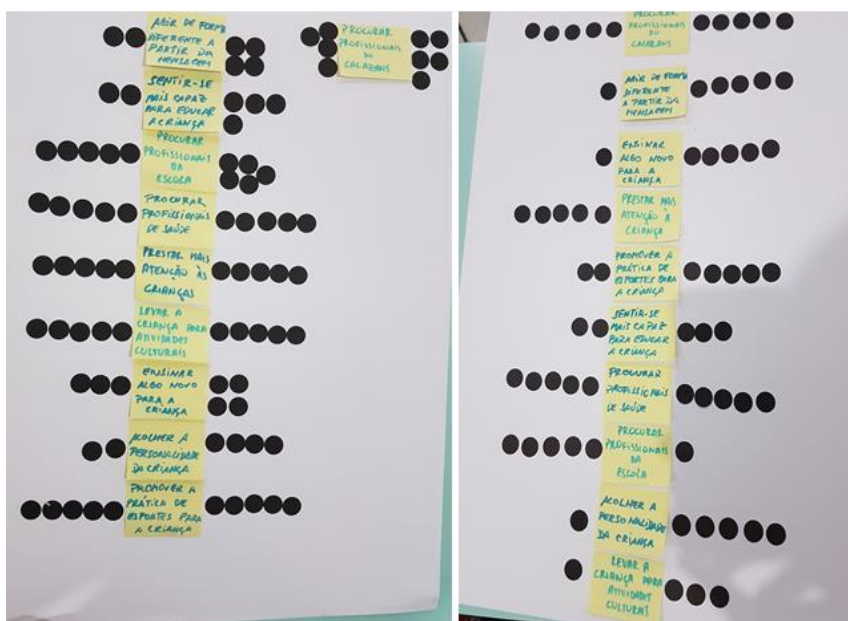 AGIR DE FORMA
DIFERENTE A
PARTIR DA
MENSAGEM
SENTIR-SE
MAIS CAPAZ
PARA EDUCAR
A CRIANÇA
PROCURAR
PROFISSIONAIS
DA
ESCOLA
PROCURAR
PROFISSIONAIS
DE SAÚDE
PRESTAR MAIS
ATENÇÃO ÀS
CRIANÇAS
LEVAR A
CRIANÇA PARA
ATIVIDADES
CULTURAIS
ENSINAR
ALGO NOVO
PARA A
CRIANÇA
ACOLHER A
PERSONALIDADE
DA CRIANÇA
PROMOVER A
PRÁTICA DE
ESPORTES PARA
A CRIANÇA
PROCURAR
PROFISSIONAIS
DO
CALAZANS
PROCURAR
PROFISSIONAIS
DO
CALAZANS
AGIR DE FORMA
DIFERENTE
A PARTIR DA
MENSAGEM
ENSINAR
ALGO NOVO
PARA A
CRIANÇA
PRESTAR MAIS
ATENÇÃO À
CRIANÇA
PROMOVER A
PRÁTICA DE
ESPORTES PARA
A CRIANÇA
SENTIR-SE
MAIS CAPAZ
PARA EDUCAR
A CRIANÇA
PROCURAR
PROFISSIONAIS
DE SAÚDE
PROCURAR
PROFISSIONAIS
DA
ESCOLA
ACOLHER A
PERSONALIDADE
DA CRIANÇA
LEVAR A
CRIANÇA PARA
ATIVIDADES
CULTURAIS